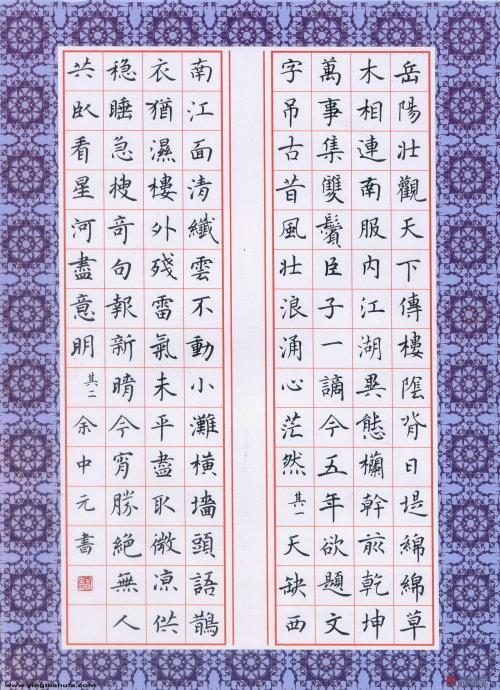 岳陽壮觀天下傳樓陰背日堤綿綿草
木相連南服内江湖異態欄幹前乾坤
萬事集雙鬢臣子一謫今五年欲題文
字吊古昔風壮浪涌心茫然其一天缺西
南江面清纖雲不動小灘横墙頭語鵲
衣猶濕樓外殘雷氣未平盡取微凉供
稳睡急搜奇句報新晴今宵勝絶無人
共卧看星河盡意明其二余中元書
www.yingbishufa.com